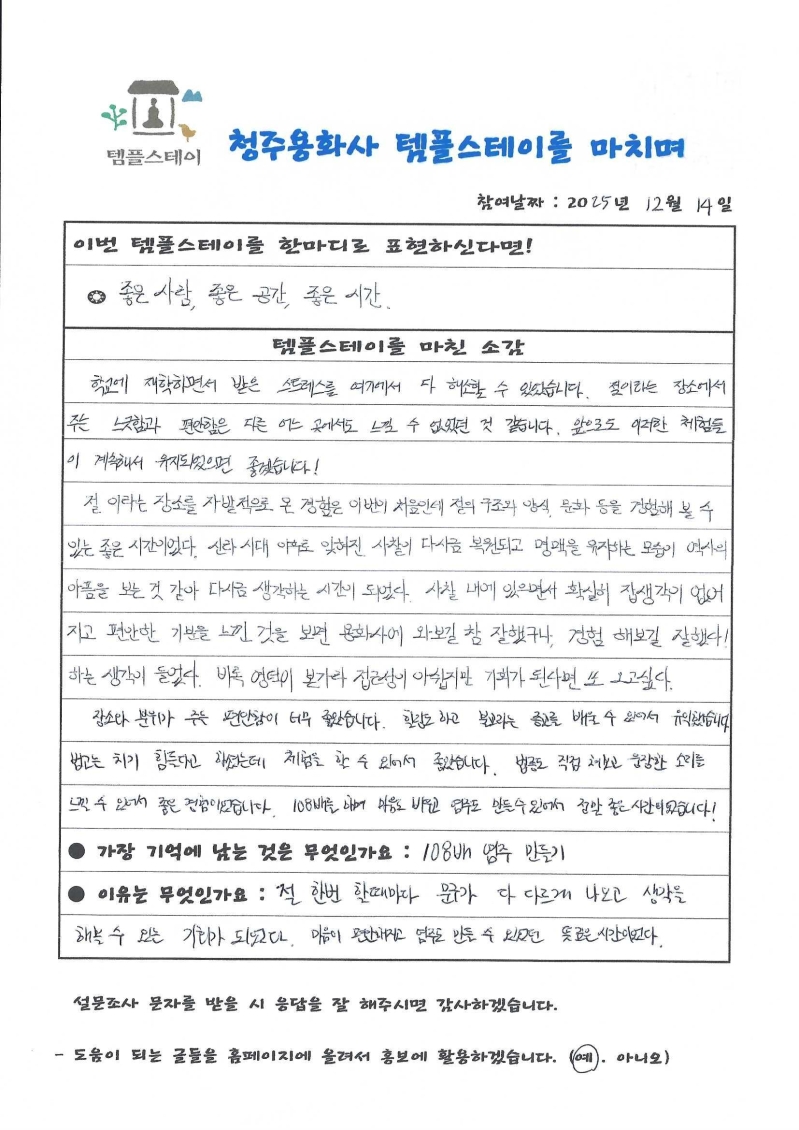 템플스테이
청주용화사 템플스테이를 마치며
참여날짜 : 2025년 12월 14일
이번 템플스테이를 한마디로 표현하신다면!
좋은 사람, 좋은 공간, 좋은 시간.
템플스테이를 마친 소감
학교에 재학하면서 받은 스트레스를 여기에서 다 해소할 수 있었습니다. 절이라는 장소에서
주는 느긋함과 편안함은 다른 어느 곳에서도 느낄 수 없었던 것 같습니다. 앞으로도 이러한 체험들
이 계속해서 유지되었으면 좋겠습니다!
절 이라는 장소를 자발적으로 온 경험은 이번이 처음인데 절의 구조와 양식, 문화 등을 경험해 볼 수
있는 좋은 시간이었다. 신라 시대 이후로 잊혀진 사찰이 다시금 복원되고 명맥을 유지하는 모습이 역사의
아픔을 보는 것 같아 다시금 생각하는 시간이 되었다. 사찰 내에 있으면서 확실히 잡생각이 없어
지고 편안한 기분을 느낀 것을 보면 용화사에 와보길 참 잘했구나, 경험 해보길 잘했다!
하는 생각이 들었다. 비록 영턱이 본가라 접근성이 아쉽지만 기회가 된다면 또 오고싶다.
장소나 분위가 주는 편안함이 너무 좋았습니다. 합장도 하고 불교라는 종교를 배울 수 있어서 유익했습니다
법고는 치기 힘든다고 하셨는데 체험을 할 수 있어서 좋았습니다. 범종도 직접 쳐보고 웅장한 소리를
느낄 수 있어서 좋은 경험이었습니다. 108배를 하며 마음도 비우고 염주도 만들 수 있어서 정말 좋은 시간이었습니다!
● 가장 기억에 남는 것은 무엇인가요 : 108배 염주 만들기
● 이유는 무엇인가요 : 절 한번 할때마다 문구가 다 다르게 나오고 생각을
해볼 수 있는 기회가 되었다. 마음이 편안해지고 염주도 만들 수 있었던 뜻깊은시간이었다.
설문조사 문자를 받을 시 응답을 잘 해주시면 감사하겠습니다.
- 도움이 되는 글들을 홈페이지에 올려서 홍보에 활용하겠습니다. (예. 아니오)